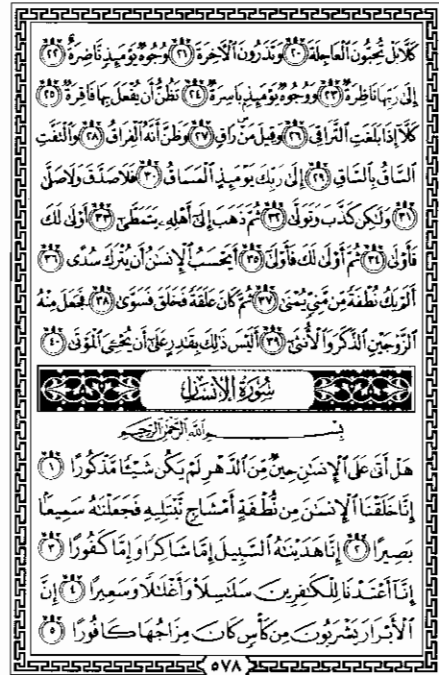 كَلَّا بَلْ تُحِبُّونَ ٱلْعَاجِلَةَ ٢٠ وَتَذَرُونَ ٱلْآخِرَةَ ٢١ وُجُوهٌ يَوْمَئِذٍ نَّاضِرَةٌ ٢٢
إِلَىٰ رَبِّهَا نَاظِرَةٌ ٢٣ وَوُجُوهٌ يَوْمَئِذٍ بَاسِرَةٌ ٢٤ تَظُنُّ أَن يُفْعَلَ بِهَا فَاقِرَةٌ ٢٥
كَلَّا إِذَا بَلَغَتِ ٱلتَّرَاقِىَ ٢٦ وَقِيلَ مَنْ رَاقٍ ٢٧ وَظَنَّ أَنَّهُ ٱلْفِرَاقُ ٢٨ وَٱلْتَفَّتِ
ٱلسَّاقُ بِٱلسَّاقِ ٢٩ إِلَىٰ رَبِّكَ يَوْمَئِذٍ ٱلْمَسَاقُ ٣٠ فَلَا صَدَّقَ وَلَا صَلَّىٰ
٣١ وَلَٰكِن كَذَّبَ وَتَوَلَّىٰ ٣٢ ثُمَّ ذَهَبَ إِلَىٰ أَهْلِهِۦ يَتَمَطَّىٰٓ ٣٣ أَوْلَىٰ لَكَ
فَأَوْلَىٰ ٣٤ ثُمَّ أَوْلَىٰ لَكَ فَأَوْلَىٰٓ ٣٥ أَيَحْسَبُ ٱلْإِنسَٰنُ أَن يُتْرَكَ سُدًى ٣٦
أَلَمْ يَكُ نُطْفَةً مِّن مَّنِىٍّ يُمْنَىٰ ٣٧ ثُمَّ كَانَ عَلَقَةً فَخَلَقَ فَسَوَّىٰ ٣٨ فَجَعَلَ مِنْهُ
ٱلزَّوْجَيْنِ ٱلذَّكَرَ وَٱلْأُنثَىٰٓ ٣٩ أَلَيْسَ ذَٰلِكَ بِقَٰدِرٍ عَلَىٰٓ أَن يُحْۦِىَ ٱلْمَوْتَىٰ ٤٠
سُورَةُ الإِنسَانِ
بِسْمِ ٱللَّهِ ٱلرَّحْمَٰنِ ٱلرَّحِيمِ
هَلْ أَتَىٰ عَلَى ٱلْإِنسَٰنِ حِينٌ مِّنَ ٱلدَّهْرِ لَمْ يَكُن شَيْـًٔا مَّذْكُورًا ١
إِنَّا خَلَقْنَا ٱلْإِنسَٰنَ مِن نُّطْفَةٍ أَمْشَاجٍ نَّبْتَلِيهِ فَجَعَلْنَٰهُ سَمِيعًۢا
بَصِيرًا ٢ إِنَّا هَدَيْنَٰهُ ٱلسَّبِيلَ إِمَّا شَاكِرًا وَإِمَّا كَفُورًا ٣
إِنَّآ أَعْتَدْنَا لِلْكَٰفِرِينَ سَلَٰسِلَا۟ وَأَغْلَٰلًا وَسَعِيرًا ٤ إِنَّ
ٱلْأَبْرَارَ يَشْرَبُونَ مِن كَأْسٍ كَانَ مِزَاجُهَا كَافُورًا ٥
٥٧٨